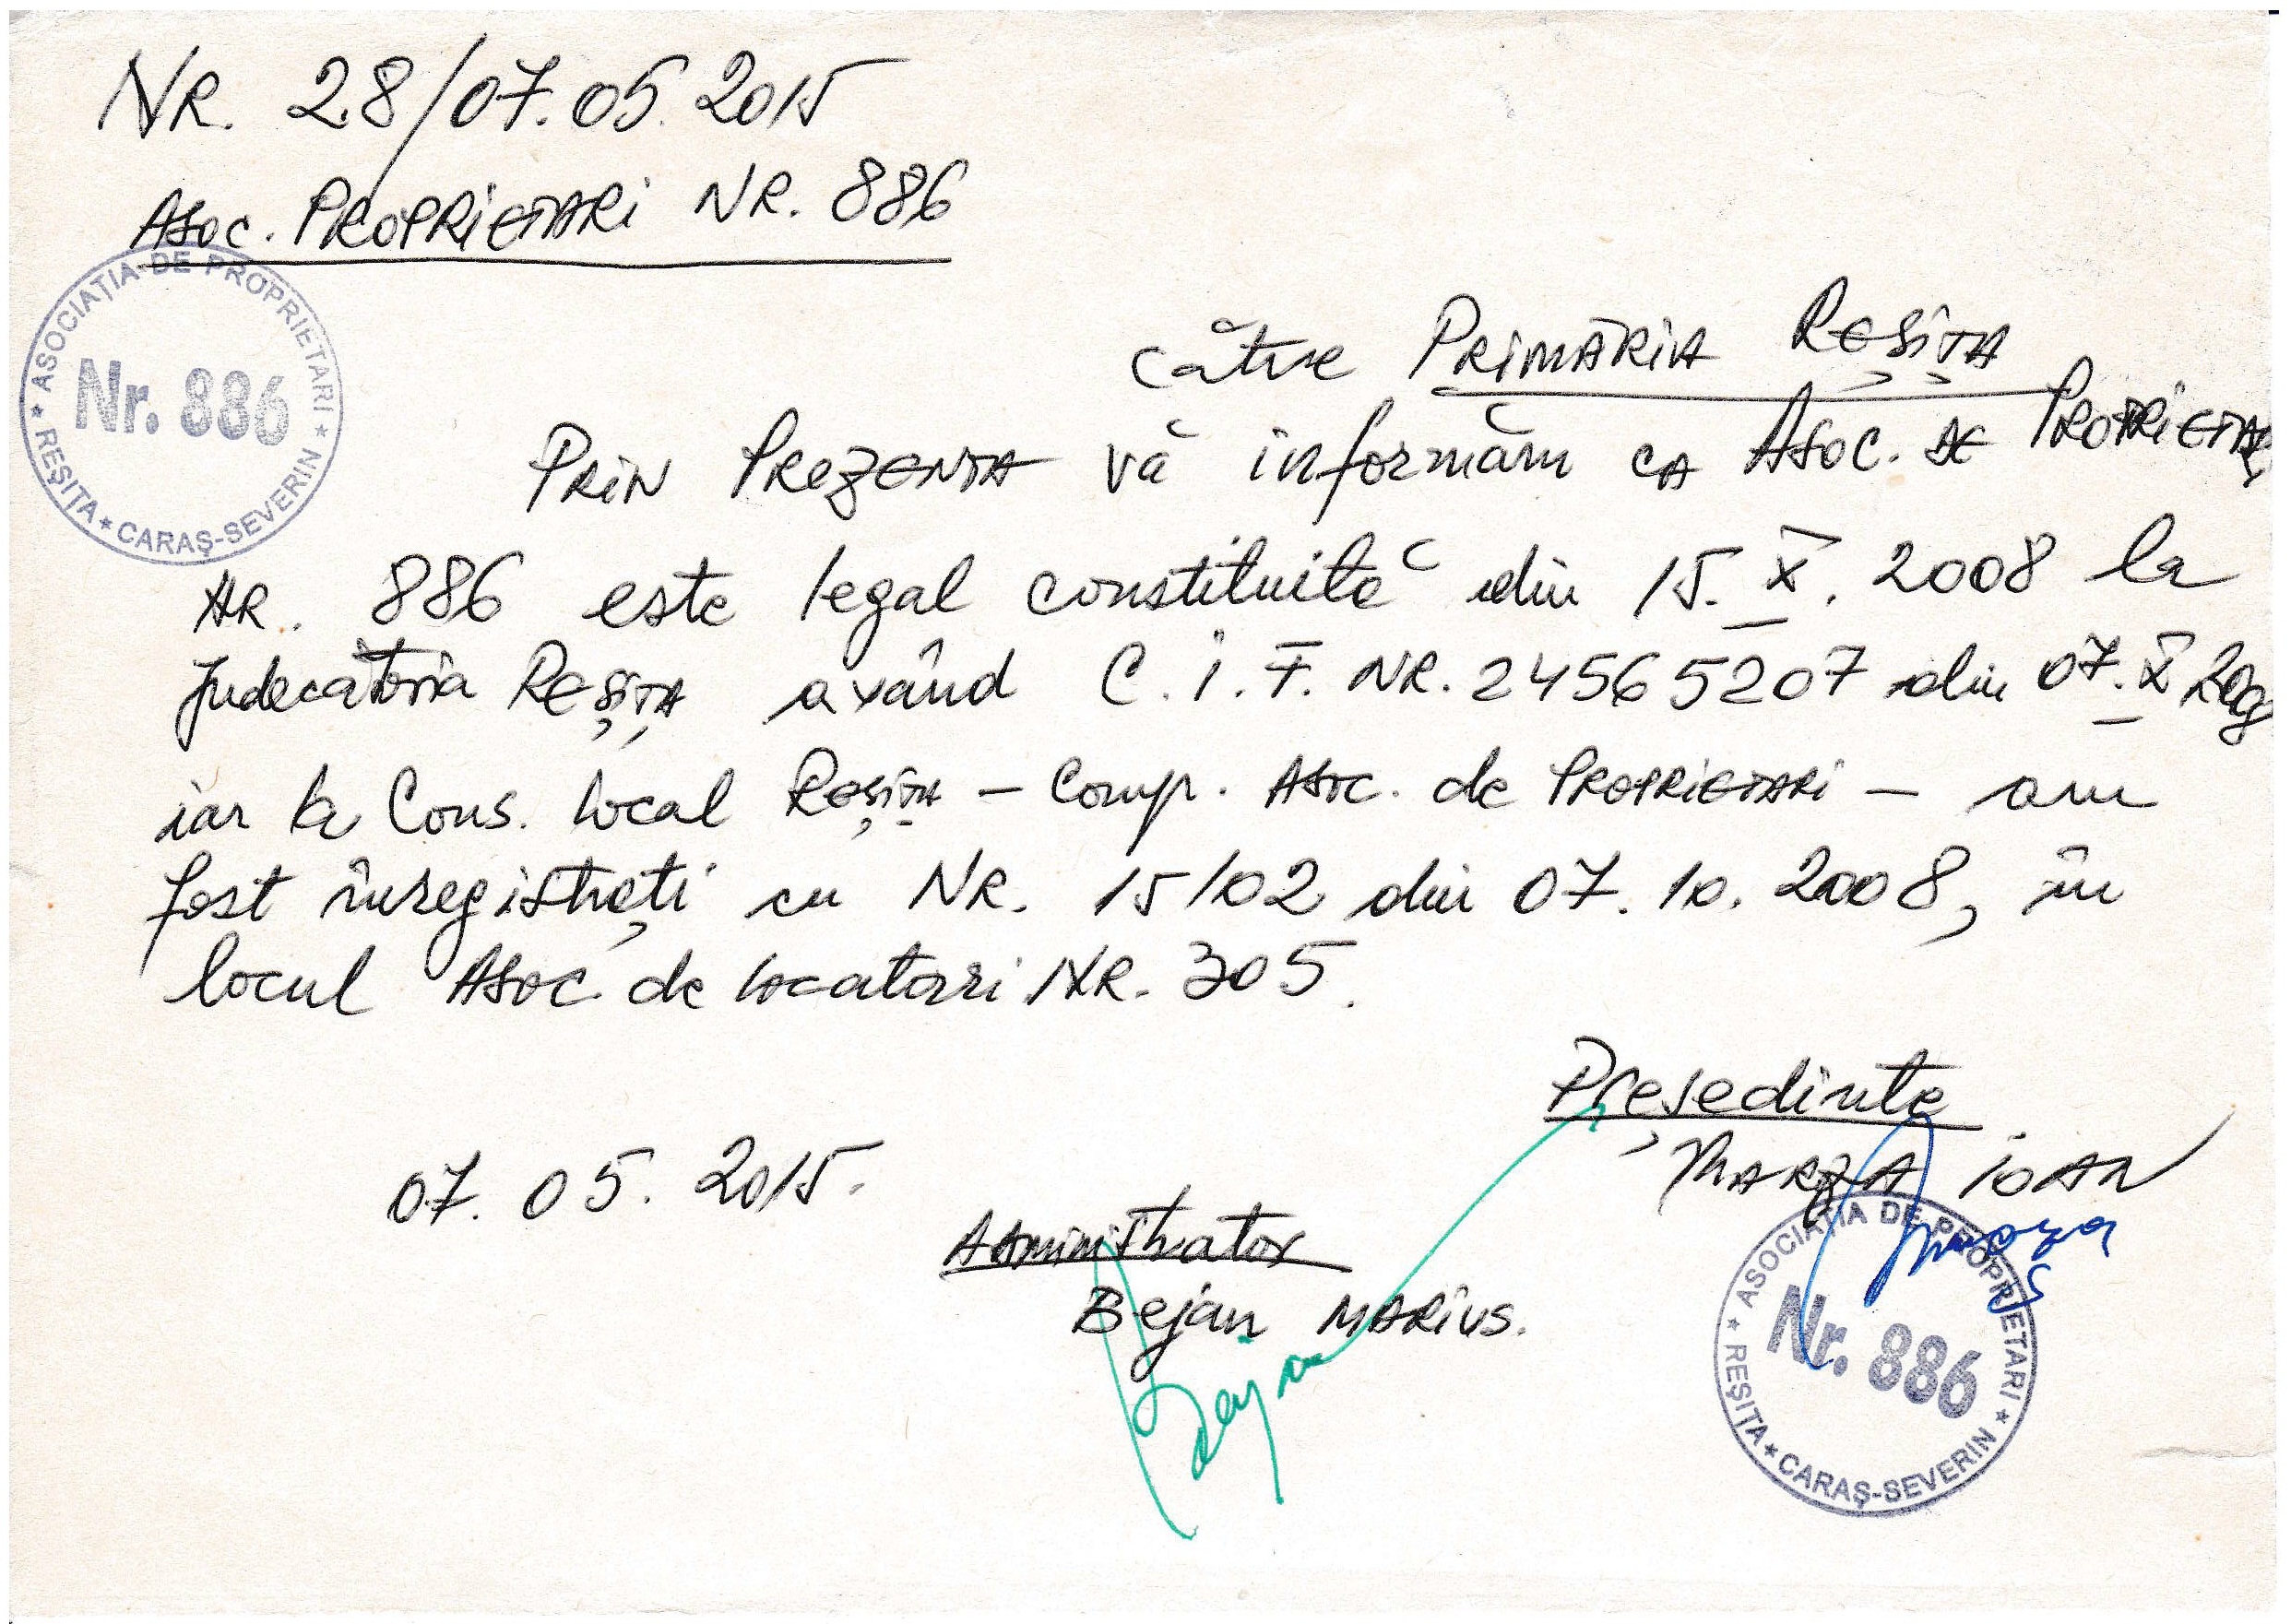 NR. 28/07.05.2015
ASOC. PROPRIETARI NR. 886
ASOCIAȚIA DE PROPRIETARI * CARAȘ-SEVERIN * REȘIȚA *
Nr. 886
către PRIMĂRIA REȘIȚA
PRIN PREZENTA vă informăm CA ASOC. DE PROPRIETARI
NR. 886 este legal constituită din 15.X.2008 la
Judecătoria REȘIȚA având C.I.F. NR. 24565207 din 07.X 2008
iar la Cons. local Reșița - Comp. ASOC. de PROPRIETARI - am
fost înregistrați cu NR. 15/02 din 07.10.2008, în
locul ASOC. de locatari NR. 305.
Președinte
MARZA IOAN
07.05.2015.
Administrator
Bejan MARIUS.
Bejan
Marza
ASOCIAȚIA DE PROPRIETARI * CARAȘ-SEVERIN * REȘIȚA *
Nr. 886